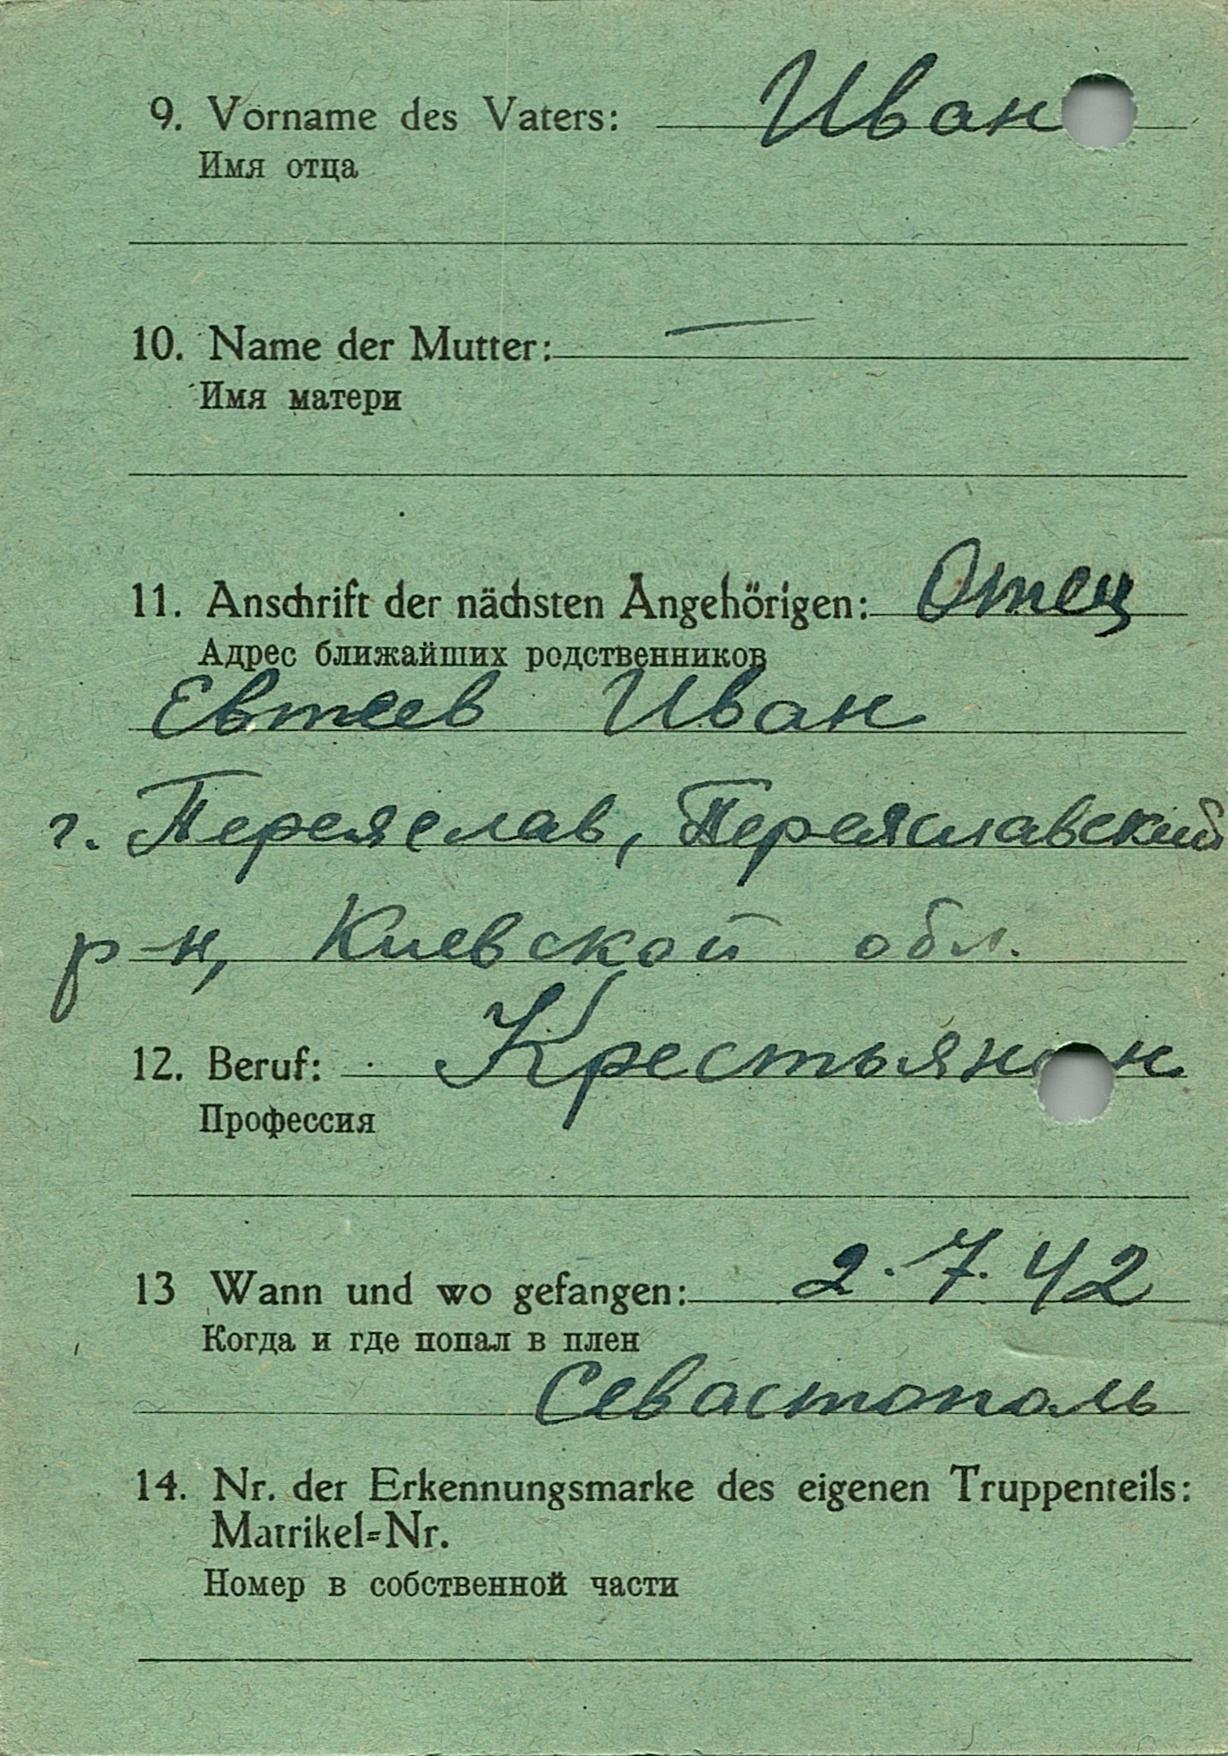 9. Vorname des Vaters: Иван
Имя отца
10. Name der Mutter: —
Имя матери
11. Anschrift der nächsten Angehörigen: Отец
Адрес ближайших родственников
Евтеев Иван
г. Переяслав, Переяславский
р-н, Киевской обл.
12. Beruf: Крестьянин
Профессия
13 Wann und wo gefangen: 2.7.42
Когда и где попал в плен
Севастополь
14. Nr. der Erkennungsmarke des eigenen Truppenteils:
Matrikel=Nr.
Номер в собственной части